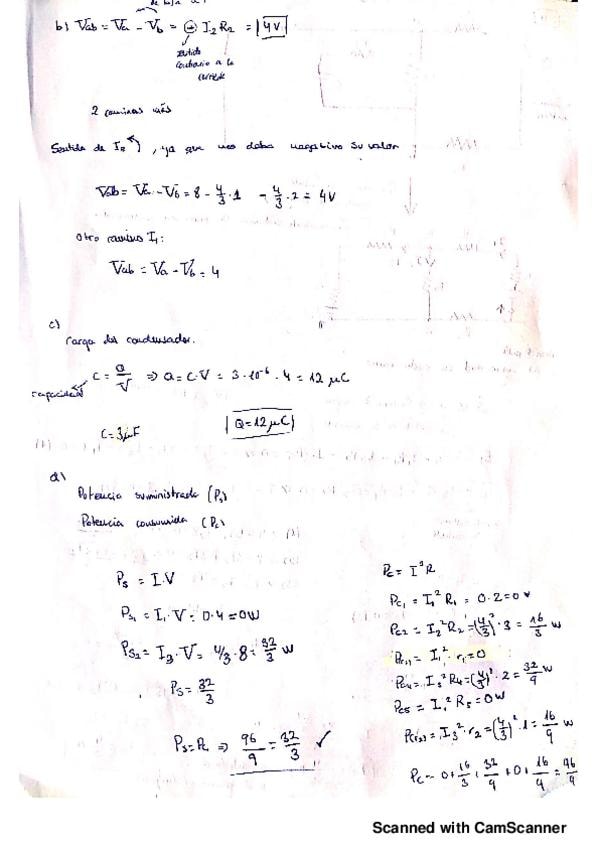 b) Vab = Va - Vb = ⊖ I₂R₂ = 4V
sentido
contrario a la
corriente
2 caminos más
Sentido de I₂ , ya que nos daba negativo su valor
Vab = Va - Vb = 8 - 4/3 · 1 - 4/3 · 2 = 4V
Otro camino I₁:
Vab = Va - Vb = 4
c)
Carga del condensador.
C = Q/V ⇒ Q = C·V = 3·10⁻⁶ · 4 = 12 μC
capacidad
C = 3μF
Q = 12 μC
d)
Potencia suministrada (Ps)
Potencia consumida (Pc)
Ps = I·V
Ps₁ = I₁·V = 0·4 = 0W
Ps₂ = I₃·V = 4/3·8 = 32/3 W
Ps = 32/3
Ps = Pc ⇒ 96/9 = 32/3 ✓
Pc = I²R
Pc₁ = I₁² R₁ = 0·2 = 0 W
Pc₂ = I₂² R₂ = (4/3)² · 3 = 16/3 W
Pc(r₁) = I₁² · r₁ = 0
Pc₄ = I₃² R₄ = (4/3)² · 2 = 32/9 W
Pc₅ = I₁² R₅ = 0W
Pc(r₂) = I₃² · r₂ = (4/3)² · 1 = 16/9 W
Pc = 0 + 16/3 + 32/9 + 0 + 16/9 = 96/9
Scanned with CamScanner